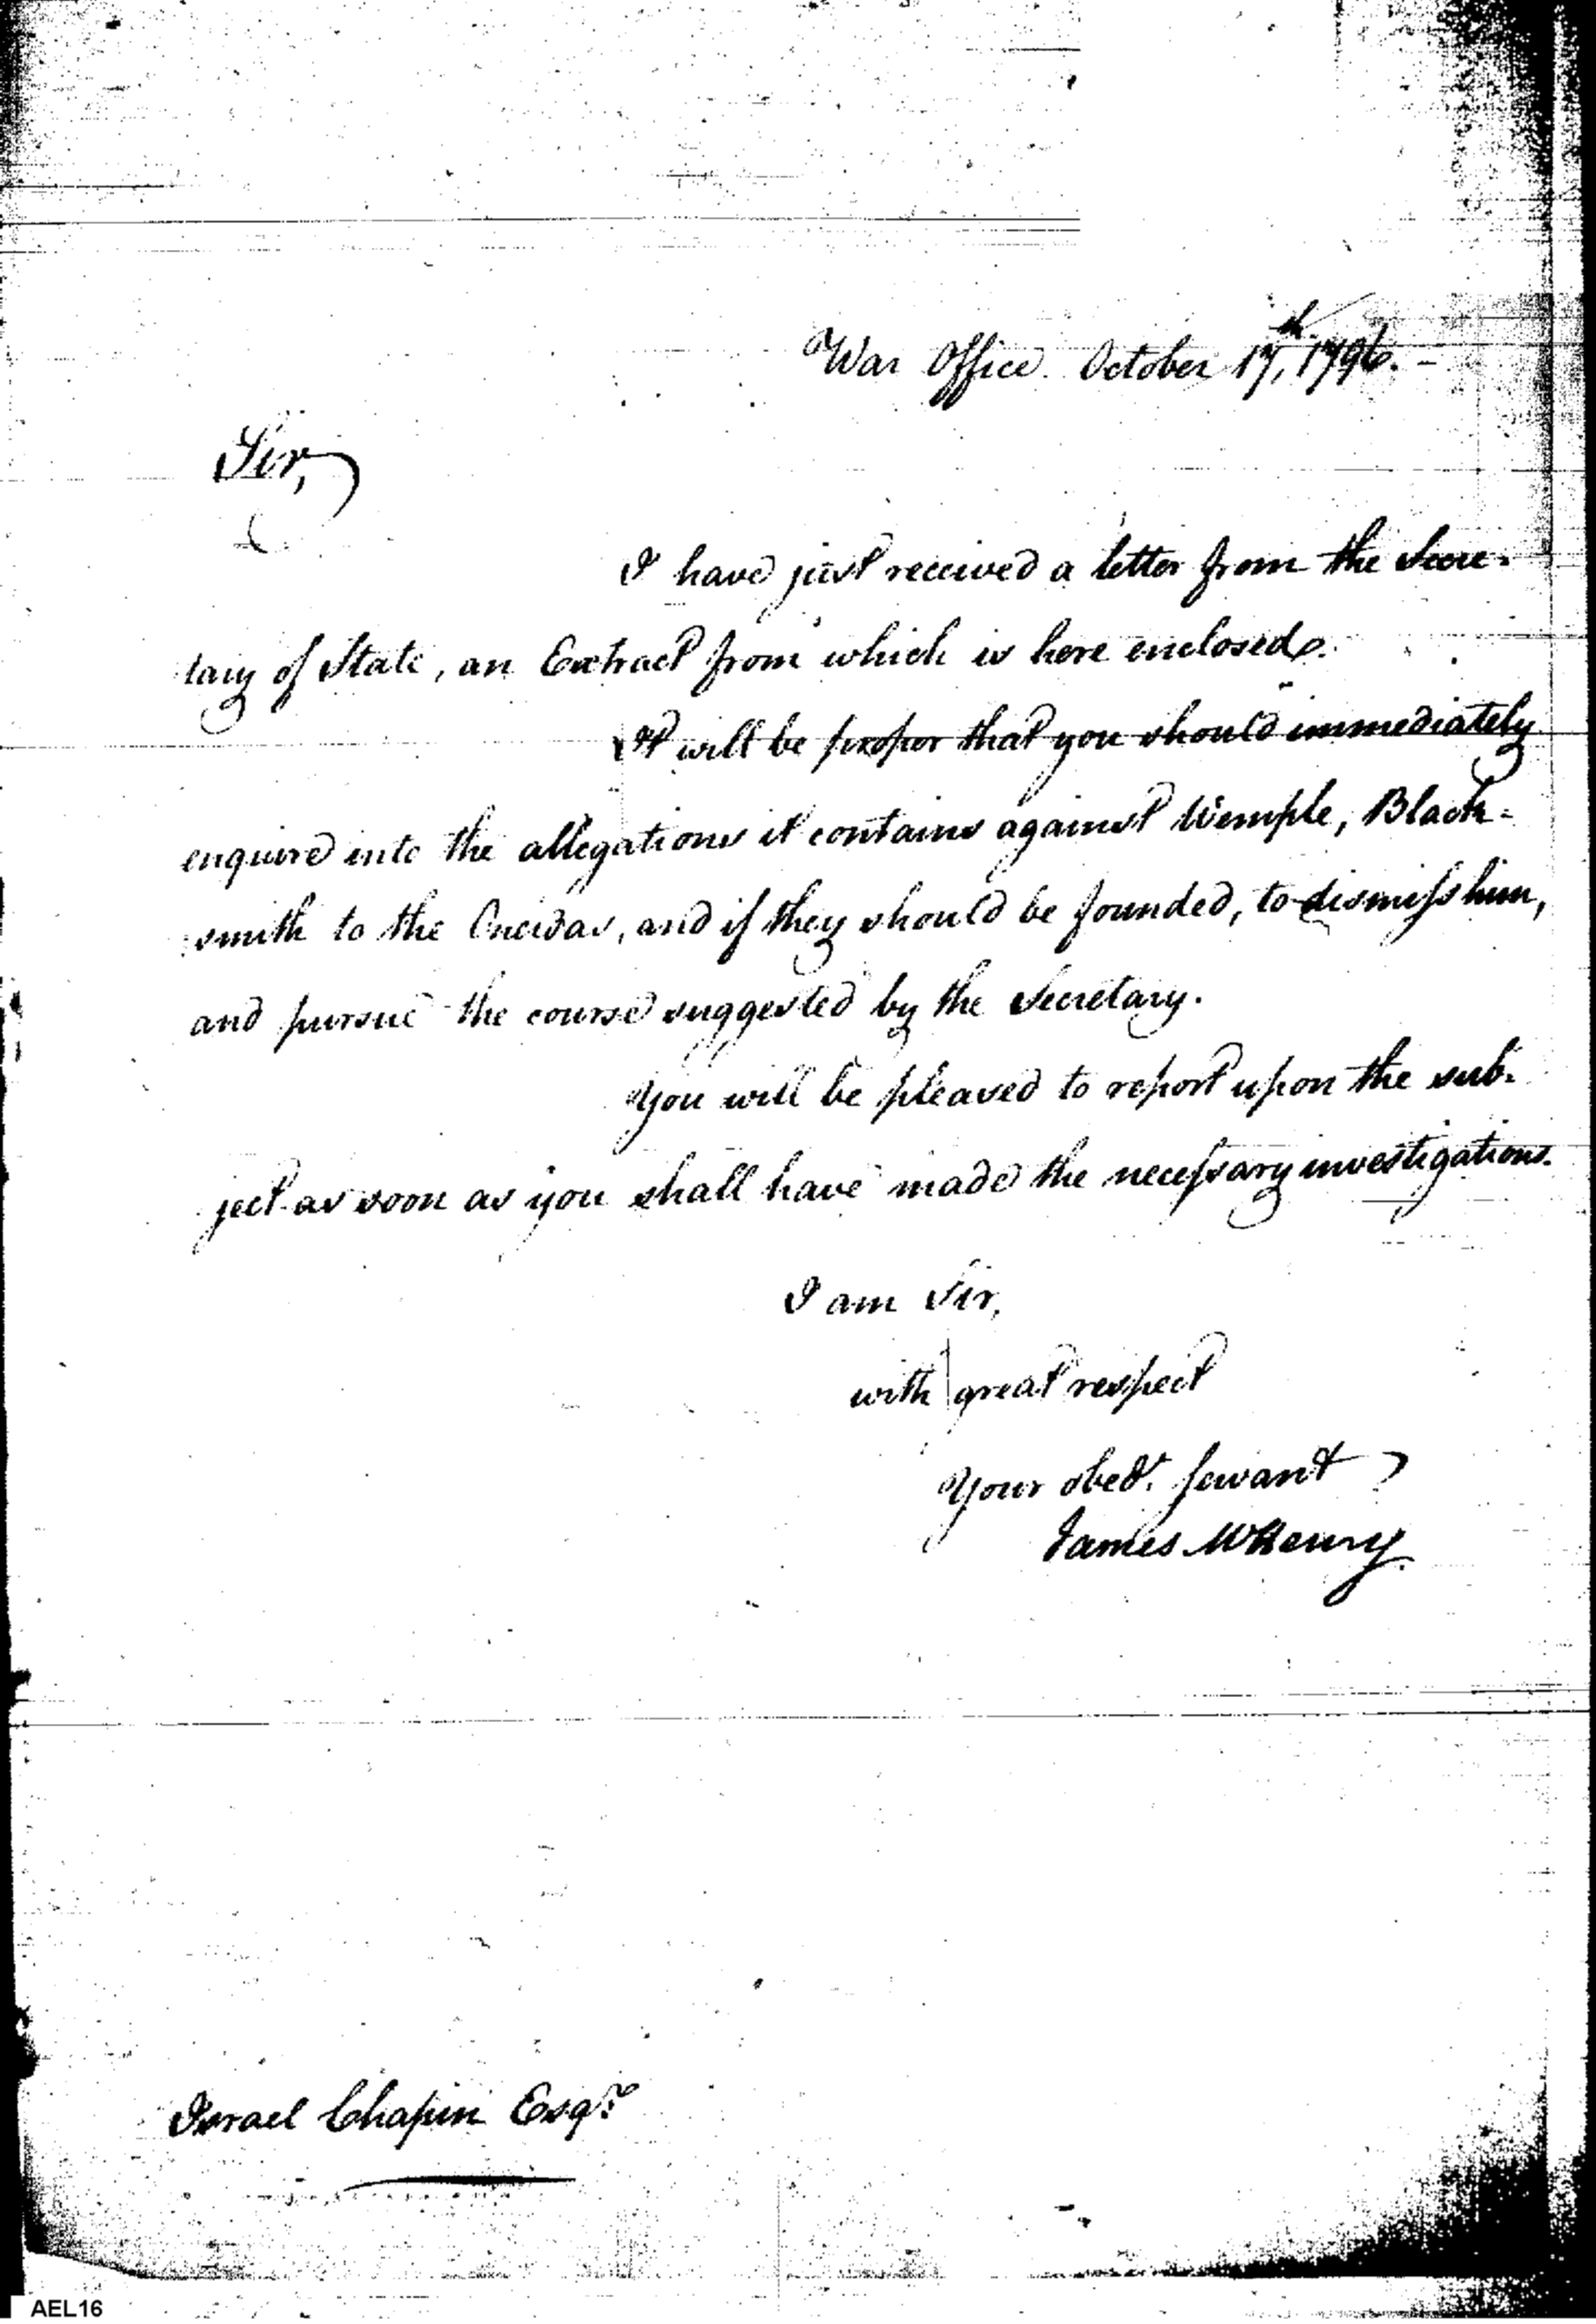 War Office. October 17th, 1796. -
Sir,
I have just received a letter from the Secre-
tary of State, an Extract from which is here enclosed.
It will be proper that you should immediately
enquire into the allegations it contains against Wemple, Black-
smith to the Oneidas, and if they should be founded, to dismiss him,
and pursue the course suggested by the Secretary.
You will be pleased to report upon the sub-
ject as soon as you shall have made the necessary investigations.
I am Sir,
with great respect
Your obedt. Servant
James McHenry
Israel Chapin Esqr.
AEL16